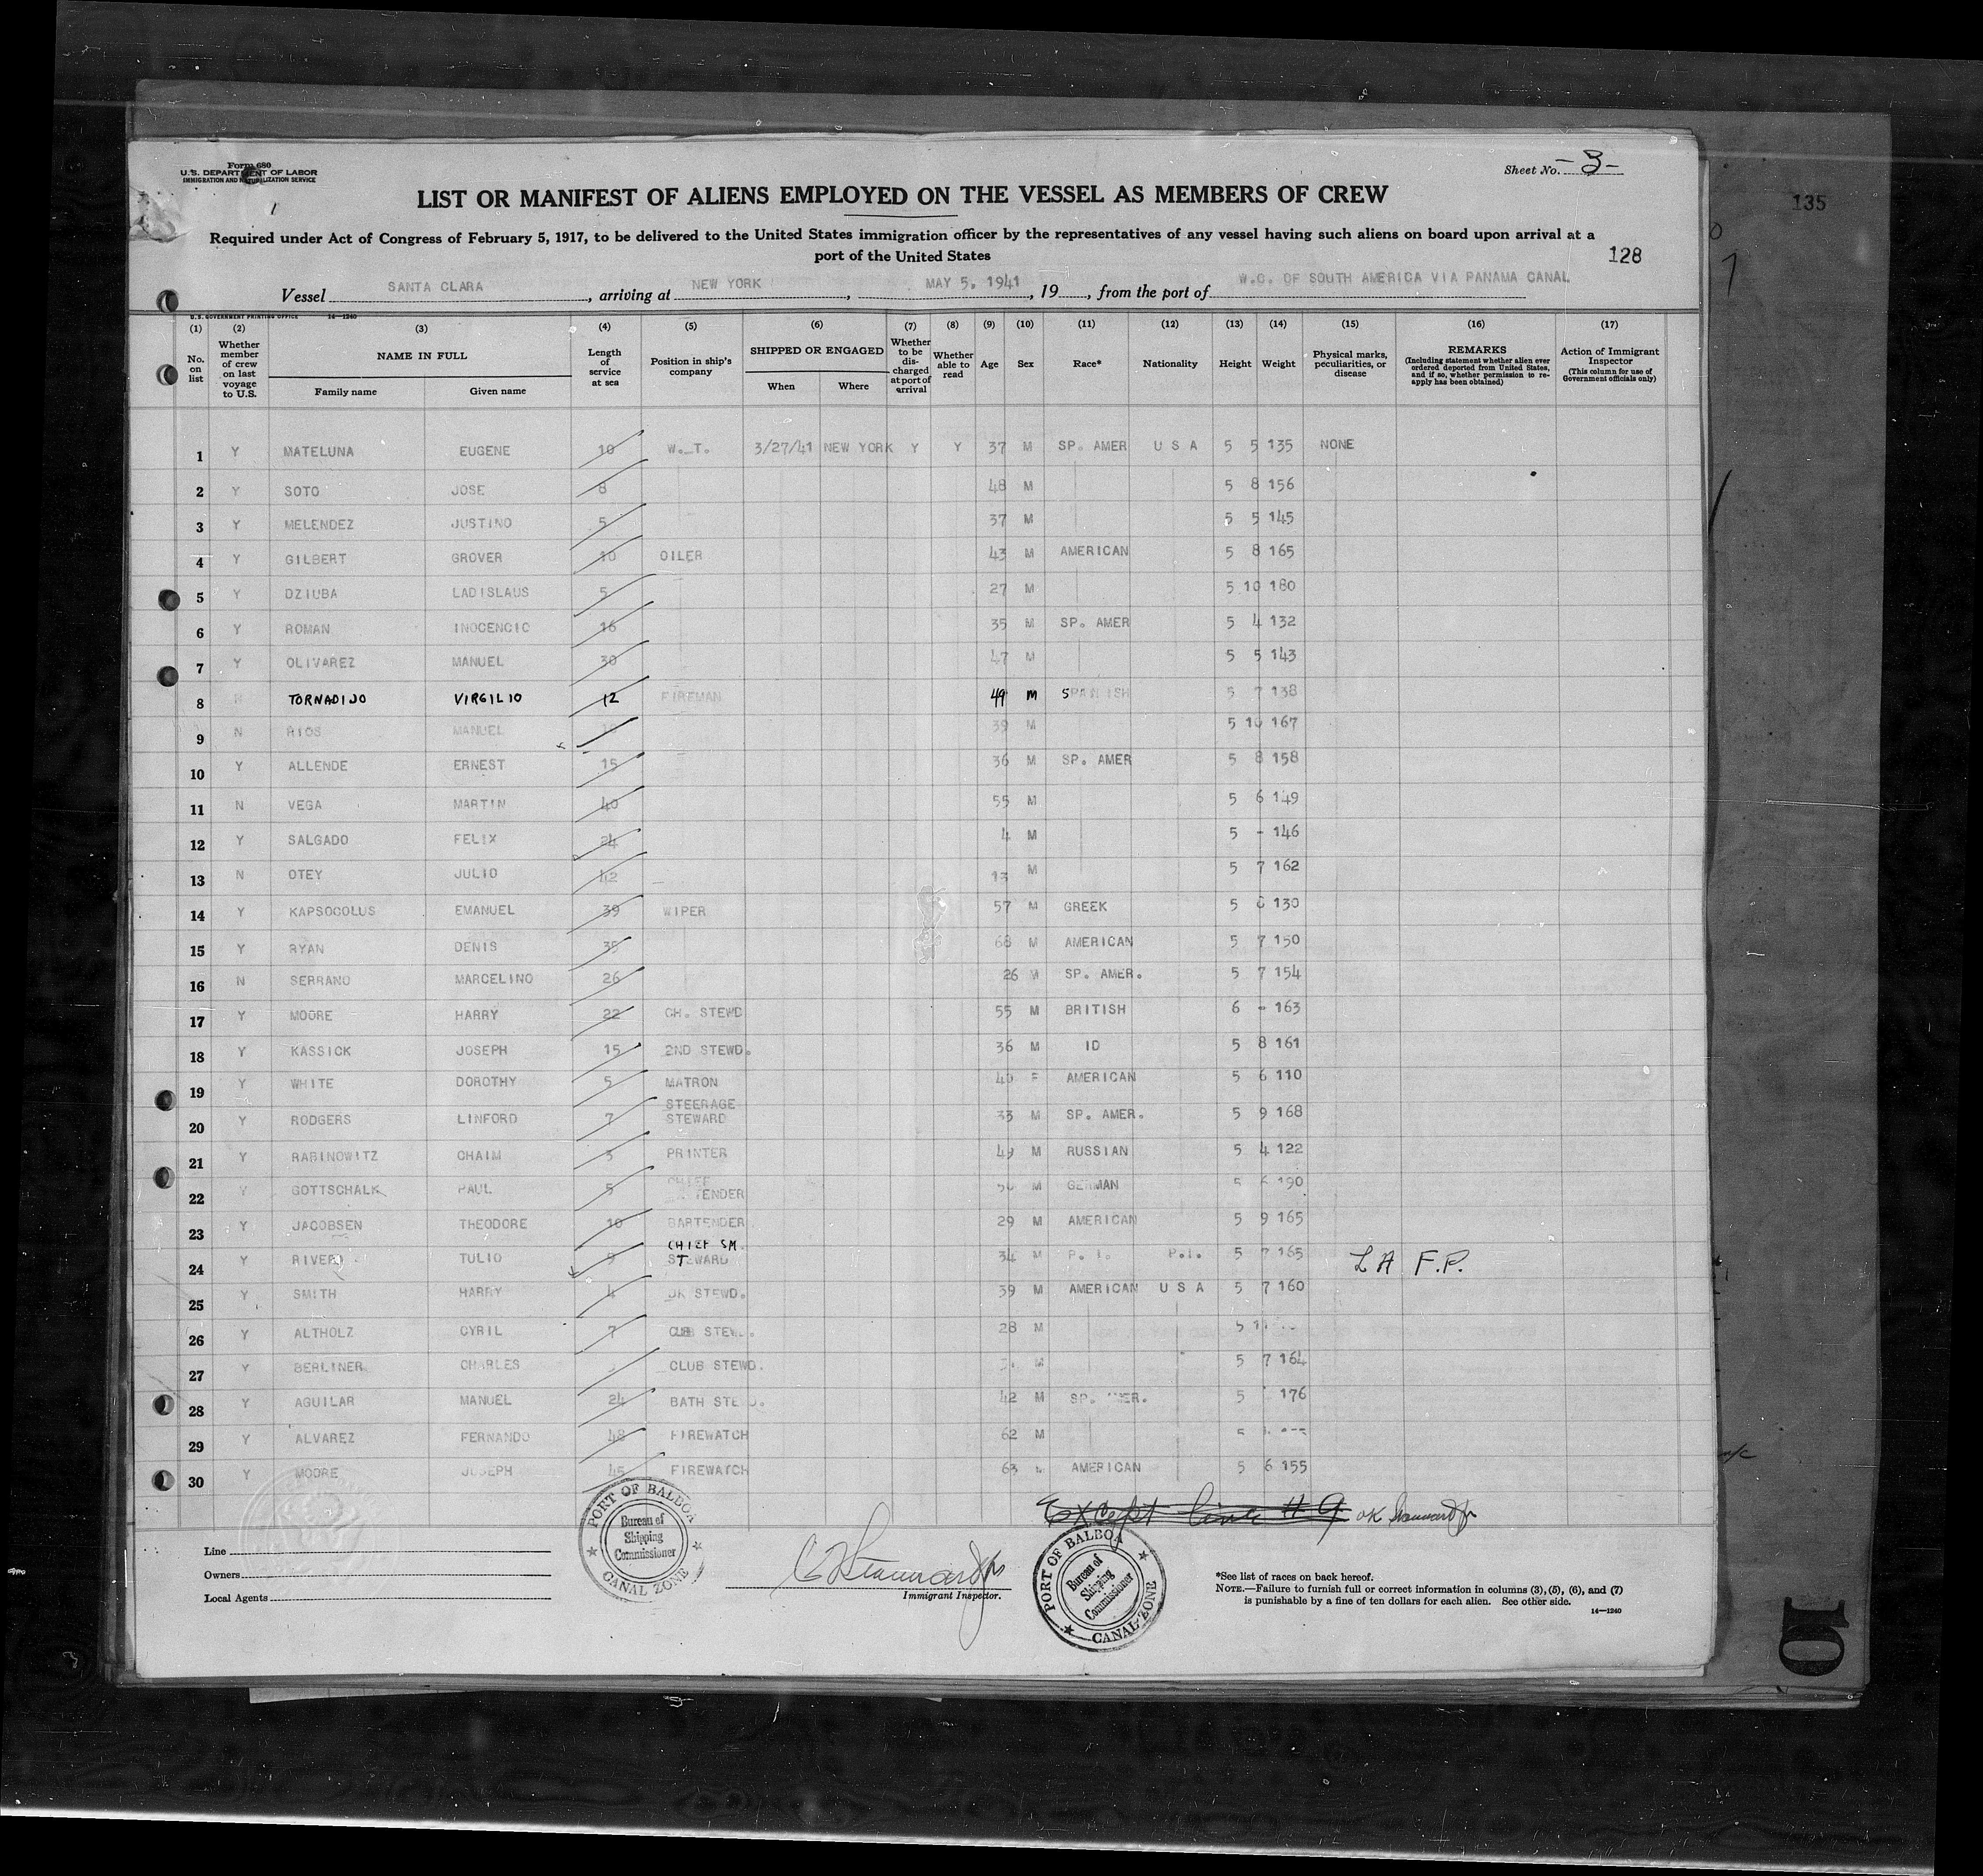 Form 680
U.S. DEPARTMENT OF LABOR
IMMIGRATION AND NATURALIZATION SERVICE
Sheet No. -3-
LIST OR MANIFEST OF ALIENS EMPLOYED ON THE VESSEL AS MEMBERS OF CREW
135
Required under Act of Congress of February 5, 1917, to be delivered to the United States immigration officer by the representatives of any vessel having such aliens on board upon arrival at a
port of the United States
128
Vessel SANTA CLARA, arriving at NEW YORK, MAY 5, 1941, 19, from the port of W.C. OF SOUTH AMERICA VIA PANAMA CANAL
U.S. GOVERNMENT PRINTING OFFICE 14—1240
(1) (2) (3) (4) (5) (6) (7) (8) (9) (10) (11) (12) (13) (14) (15) (16) (17)
No. on list
Whether member of crew on last voyage to U.S.
NAME IN FULL
Family name Given name
Length of service at sea
Position in ship's company
SHIPPED OR ENGAGED
When Where
Whether to be discharged at port of arrival
Whether able to read
Age Sex Race* Nationality Height Weight
Physical marks, peculiarities, or disease
REMARKS
(Including statement whether alien ever ordered deported from United States, and if so, whether permission to reapply has been obtained)
Action of Immigrant Inspector
(This column for use of Government officials only)
1 Y MATELUNA EUGENE 10 W.T. 3/27/41 NEW YORK Y Y 37 M SP. AMER U S A 5 5 135 NONE
2 Y SOTO JOSE 8 48 M 5 8 156
3 Y MELENDEZ JUSTINO 5 37 M 5 5 145
4 Y GILBERT GROVER 10 OILER 43 M AMERICAN 5 8 165
5 Y DZIUBA LADISLAUS 5 27 M 5 10 180
6 Y ROMAN INOCENCIO 16 35 M SP. AMER 5 4 132
7 Y OLIVAREZ MANUEL 30 47 M 5 5 143
8 N TORNADIJO VIRGILIO 12 FIREMAN 49 M SPANISH 5 7 138
9 N RIOS MANUEL 39 M 5 10 167
10 Y ALLENDE ERNEST 15 36 M SP. AMER 5 8 158
11 N VEGA MARTIN 40 55 M 5 6 149
12 Y SALGADO FELIX 24 4 M 5 - 146
13 N OTEY JULIO 12 13 M 5 7 162
14 Y KAPSOCOLUS EMANUEL 39 WIPER 57 M GREEK 5 6 130
15 Y RYAN DENIS 35 68 M AMERICAN 5 7 150
16 N SERRANO MARCELINO 26 26 M SP. AMER. 5 7 154
17 Y MOORE HARRY 22 CH. STEWD 55 M BRITISH 6 - 163
18 Y KASSICK JOSEPH 15 2ND STEWD. 36 M ID 5 8 161
19 Y WHITE DOROTHY 5 MATRON 40 F AMERICAN 5 6 110
20 Y RODGERS LINFORD 7 STEERAGE STEWARD 33 M SP. AMER. 5 9 168
21 Y RABINOWITZ CHAIM 3 PRINTER 49 M RUSSIAN 5 4 122
22 Y GOTTSCHALK PAUL 5 CHIEF TENDER M GERMAN 5 6 190
23 Y JACOBSEN THEODORE 10 BARTENDER 29 M AMERICAN 5 9 165
24 Y RIVERO TULIO 9 CHIEF SM. STEWARD 34 M P.I. P.I. 5 7 165 LA F.P.
25 Y SMITH HARRY 4 DK STEWD. 39 M AMERICAN U S A 5 7 160
26 Y ALTHOLZ CYRIL 7 CLUB STEWD. 28 M 5
27 Y BERLINER CHARLES CLUB STEWD. M 5 7 164
28 Y AGUILAR MANUEL 24 BATH STEWD. 42 M SP. AMER. 5 176
29 Y ALVAREZ FERNANDO 48 FIREWATCH 62 M 5
30 Y MOORE JOSEPH 45 FIREWATCH 63 M AMERICAN 5 6 155
Except line #9 OK
Line
Owners
Local Agents
PORT OF BALBOA
Bureau of Shipping Commissioner
CANAL ZONE
Immigrant Inspector.
PORT OF BALBOA
Bureau of Shipping Commissioner
CANAL ZONE
*See list of races on back hereof.
NOTE.—Failure to furnish full or correct information in columns (3), (5), (6), and (7)
is punishable by a fine of ten dollars for each alien. See other side.
14—1240
10